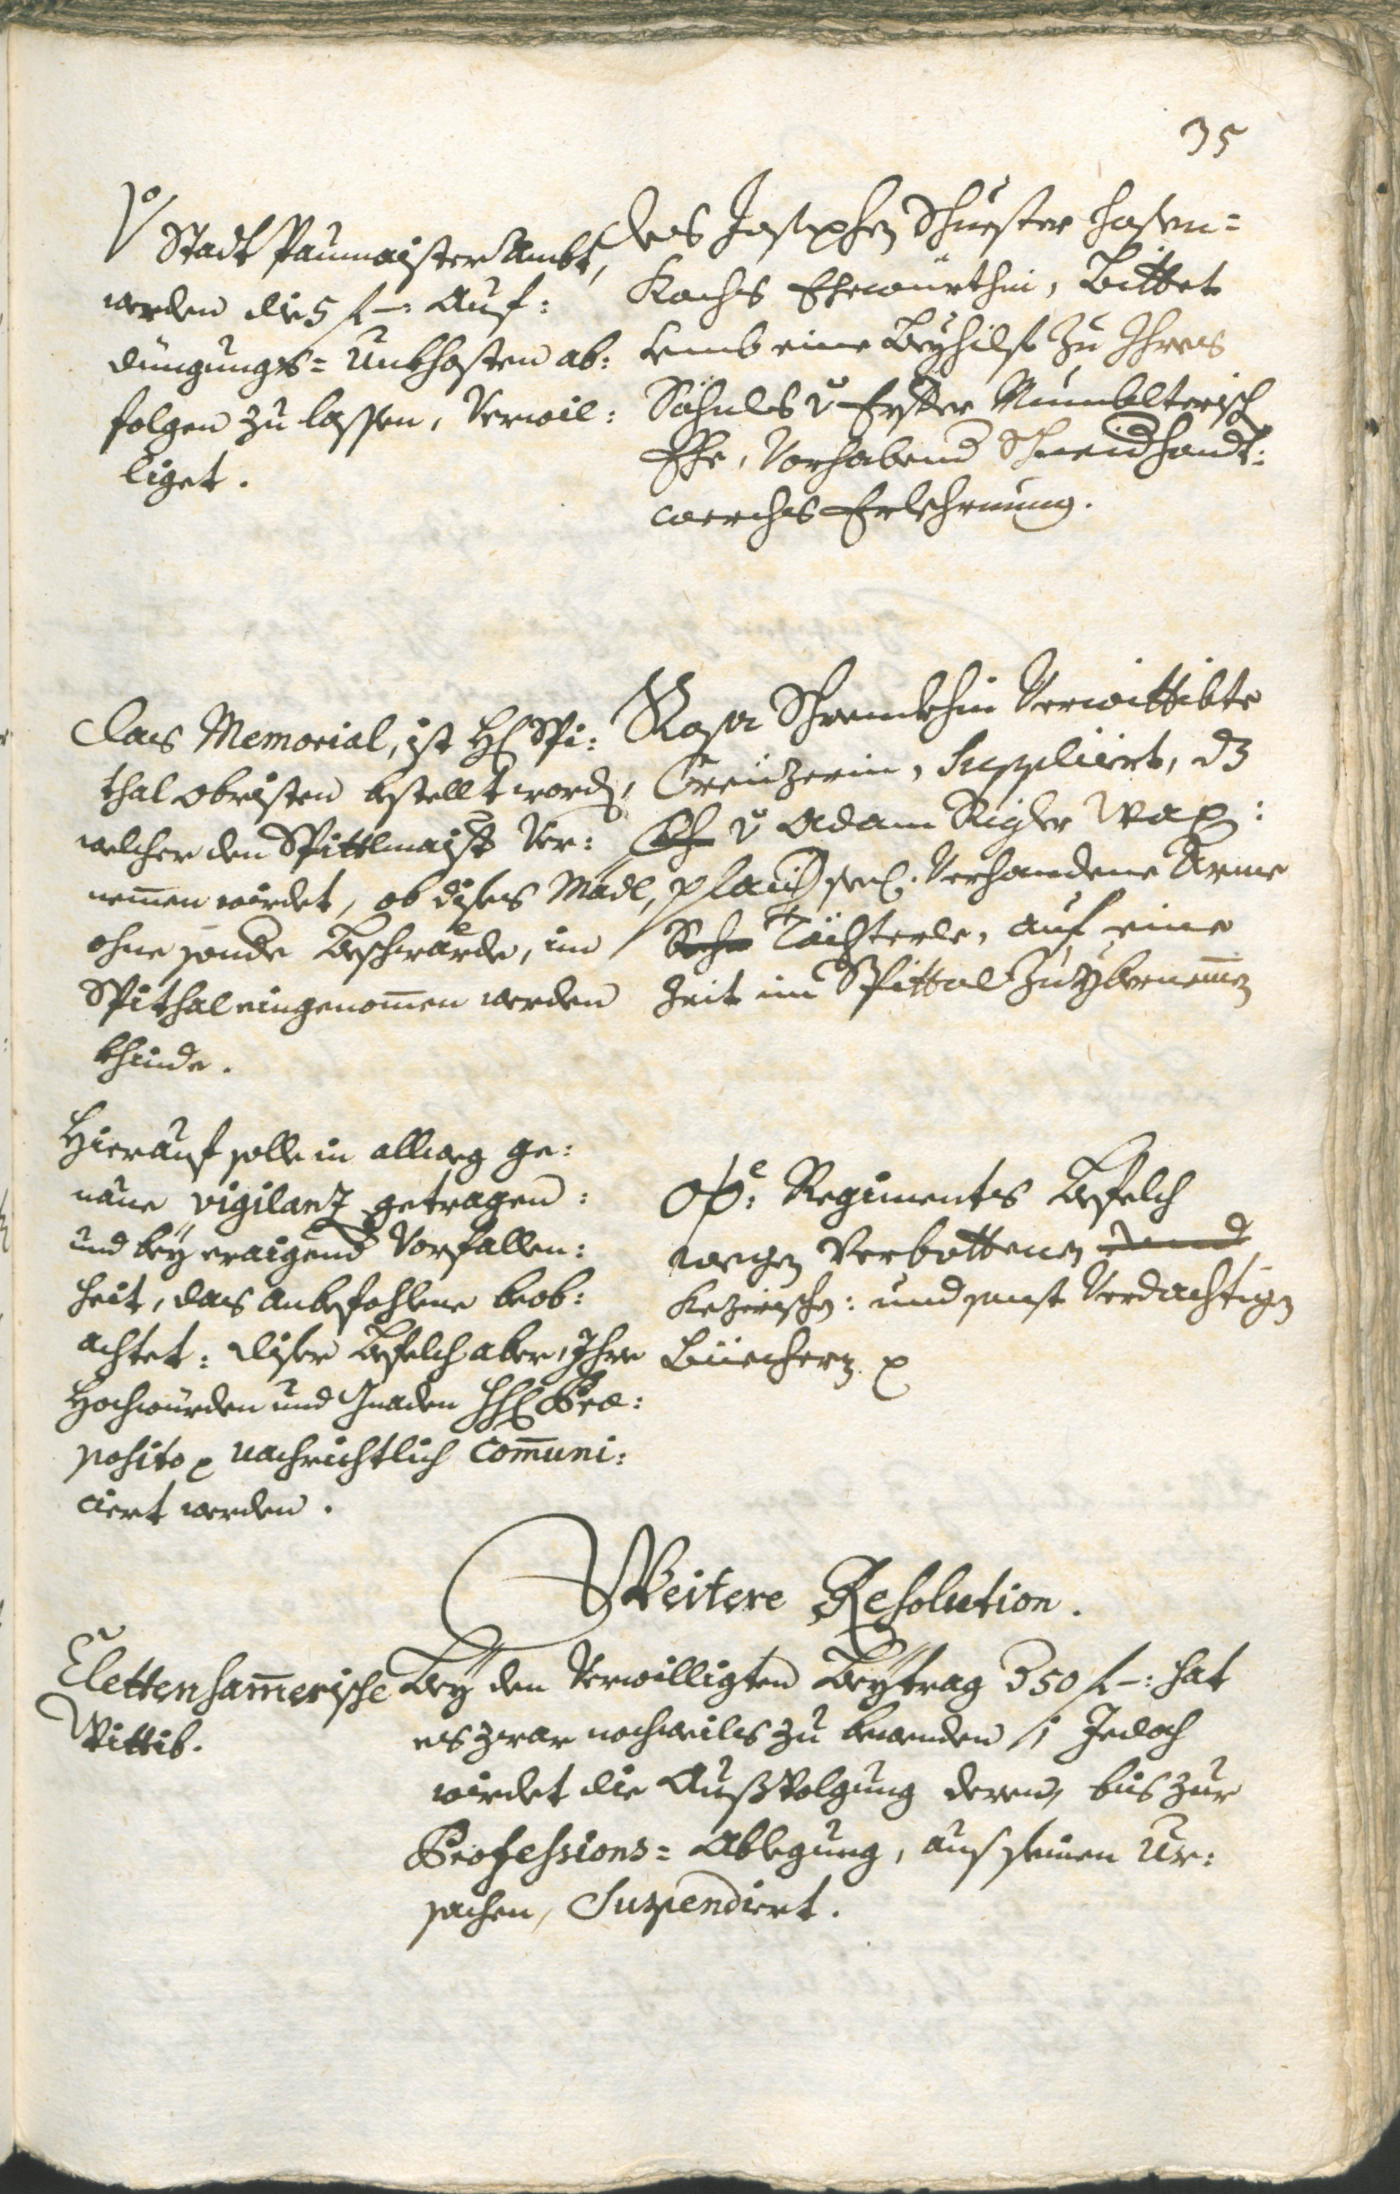 35
Vo Stadt Paumaister Ambt,
werden die 5 f –: Auf:
düngungs= Unkhosten ab:
folgen zu lassen, Verwil:
liget.
Des Josephen Schuester Hafen=
Kochs Ehewürthin, Bittet
umb eine Beyhilf zu Ihres
Söhnles v: Erster
Ehe, Vorhabend Schneidhandt:
werchs Erlehrnung.
Das Memorial, ist H: Spi:
thal obristen bestellt worden,
welcher den Spittlmaister Ver:
nemmen würdet, ob dises Mädl,
ohne sonder Beschwärde, im
Spithal eingenomen werden
khinde.
Rosa Schrenckhin Verwittibte
Creüzerin, Suppliciert, dz
v: Adam Rigler Wax:
plaich seel: Verhandene Arme
Töchterle, auf eine
Zeit im Spittal zu ybernemen
Hierauf solle in allweg ge:
naue vigilanz getragen:
und bey eraigend Vorfallen:
heit, das anbefohlene beob:
achtet: diser Befelch aber, Ihre
Hochwürden und Gnaden H: Prae:
posito p nachrichtlich Comuni:
ciert werden.
Oö: Regiments Befelch
wegen Verbottenen und
Kezerischen: und sonst Verdachtigen
Büechern p
Weitere Resolution.
Clettenhamerische
Wittib.
Bey den Verwilligten Beytrag 350 f –: hat
es zwar nochweils zu bewenden; Jedoch
würdet die Außvolgung deren, bis zur
Professions= Ablegung, aus seinen Ur:
sachen, Suspendiert.